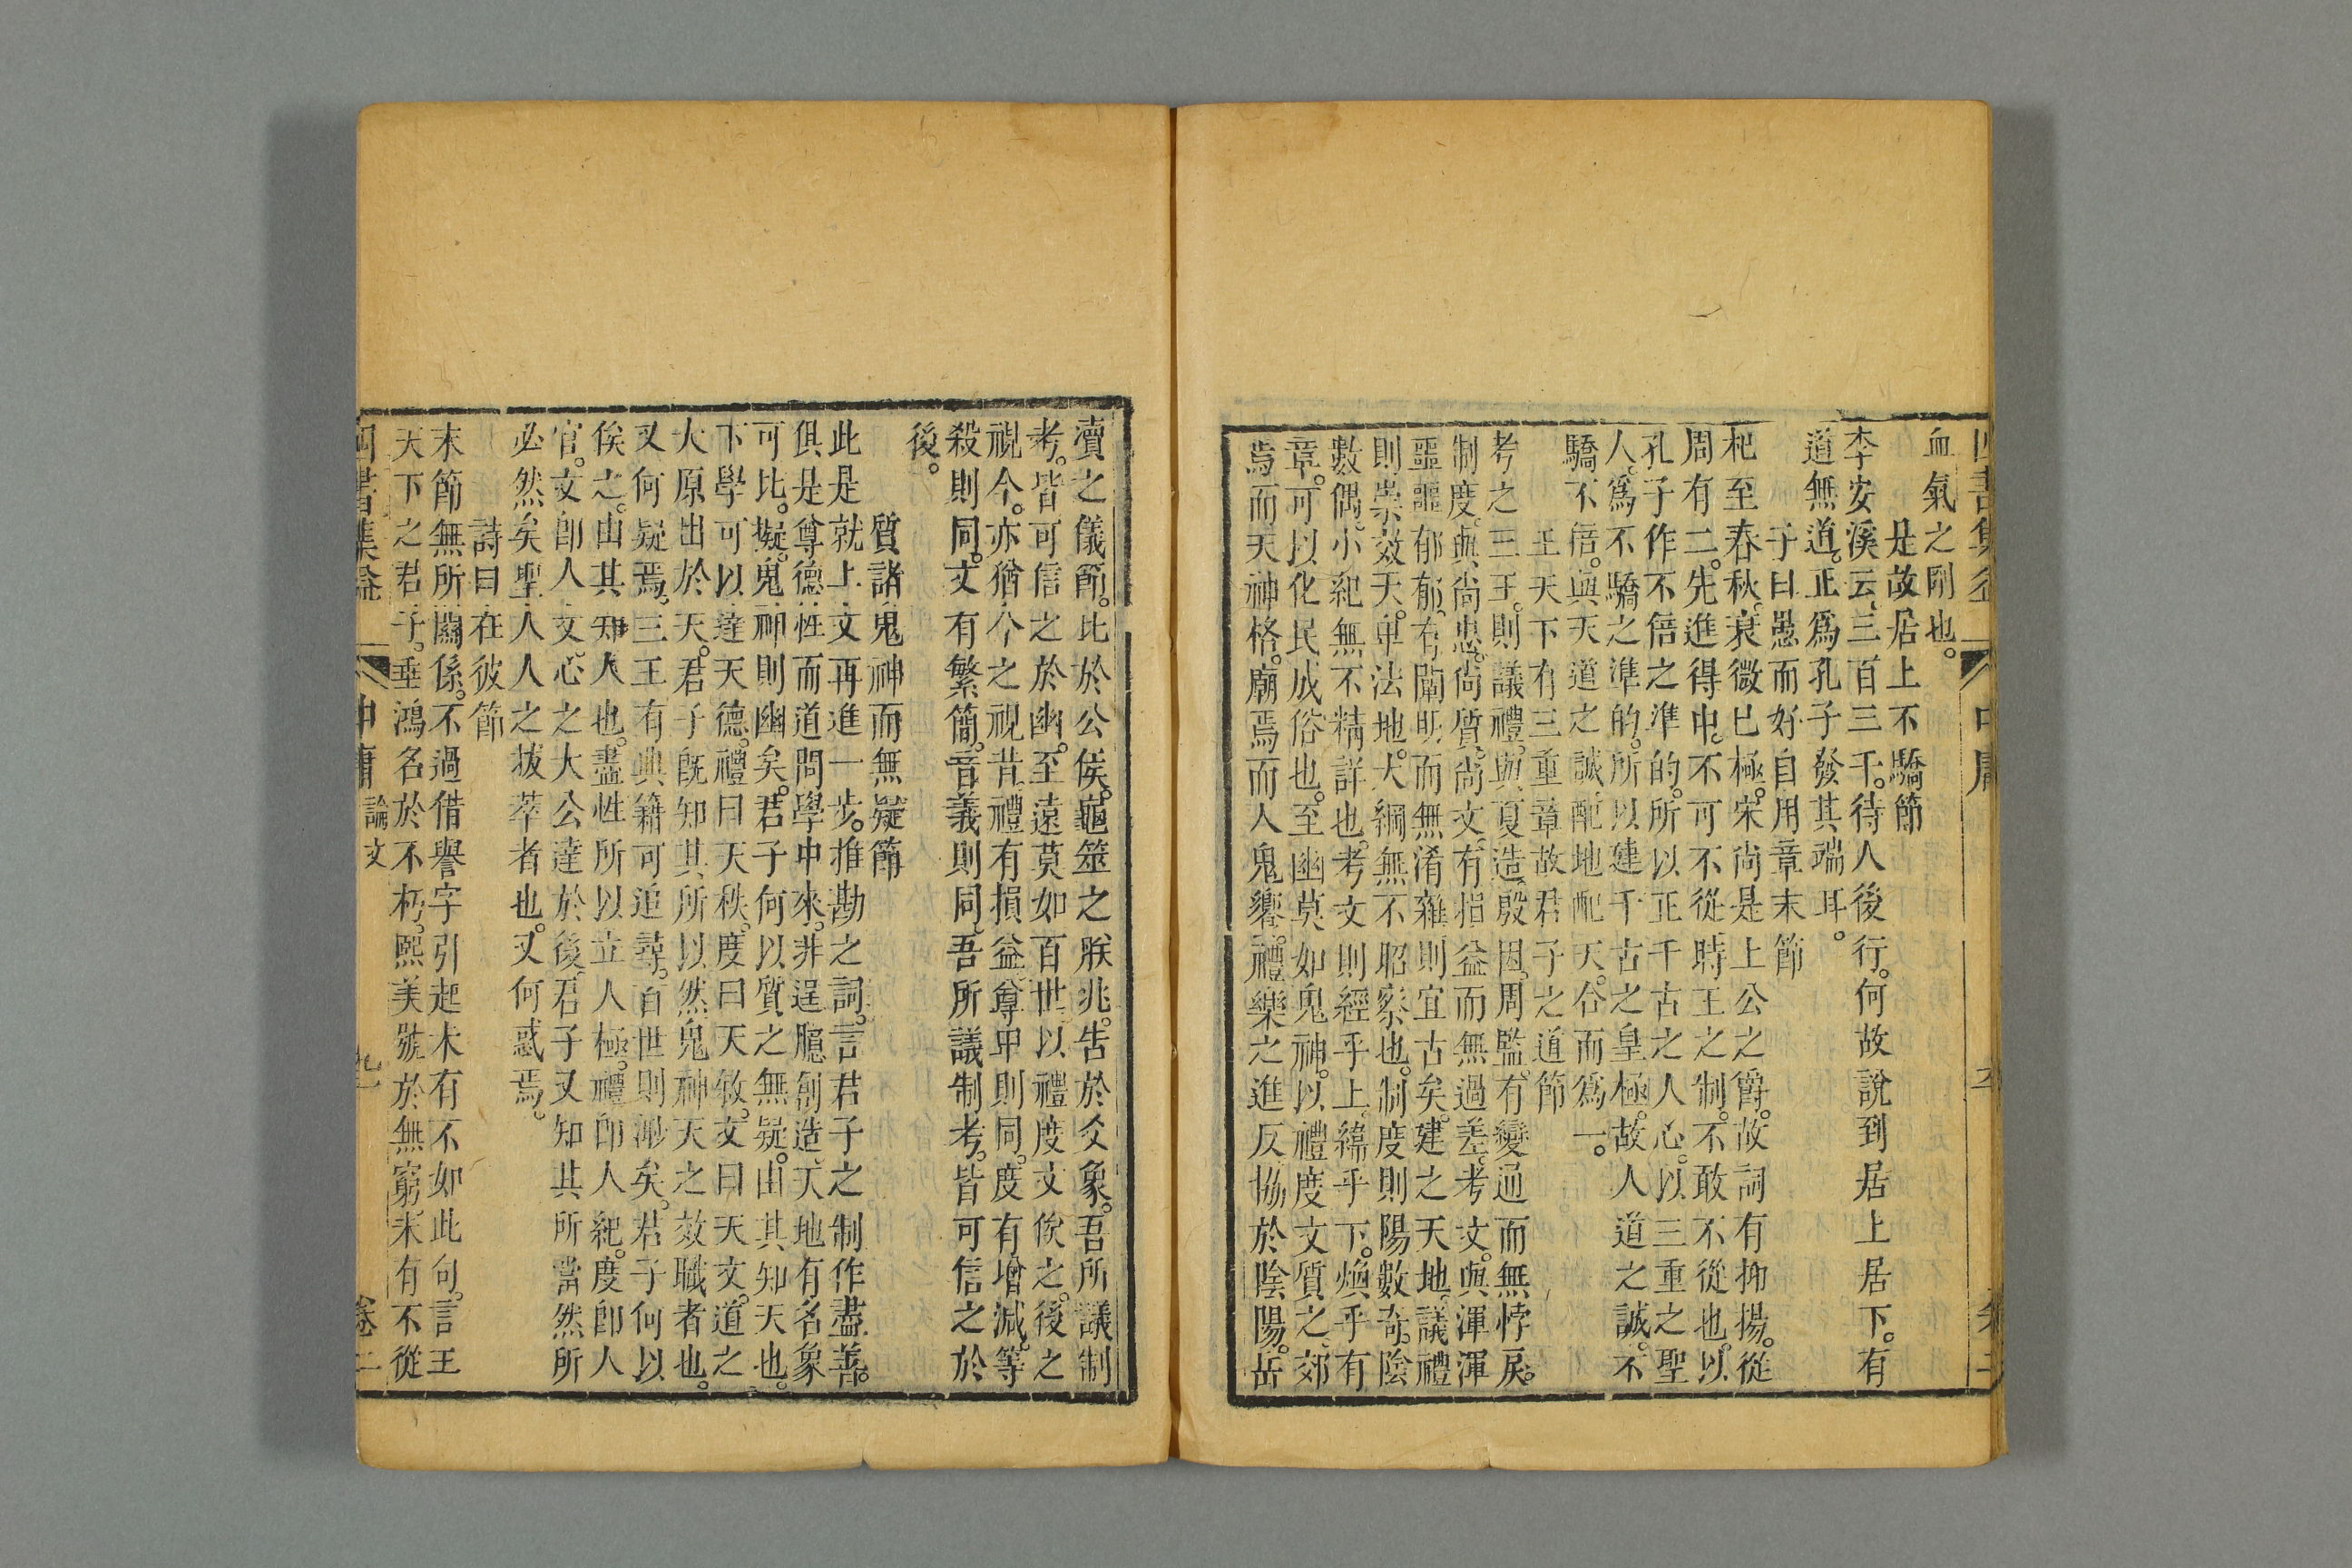 血氣之剛也。
是故居上不驕節
李安溪云、三百三千。待人後行。何故說到居上居下。有
道無道。正爲孔子發其端耳。
子曰愚而好自用章末節
杞至春秋、衰微已極。宋尚是上公之爵。故詞有抑揚。從
周有二。先進得中。不可不從。時王之制。不敢不從也。以
孔子作不倍之準的。所以正千古之人心。以三重之聖
人。爲不驕之準的。所以建千古之皇極。故人道之誠。不
驕不倍。與天道之誠、配地配天。合而爲一。
王天下有三重章故君子之道節
考之三王。則議禮。與夏造、殷因、周監。有變通而無悖戾。
制度。與尚忠。尚質。尚文、有指益而無過差。考文。與渾渾
噩噩郁郁、有闡明而無淆雜。則宜古矣。建之天地、議禮
則崇效天。卑法地。大綱無不昭察也。制度則陽數奇。陰
數偶。小紀無不精詳也。考文則經乎上、緯乎下。煥乎有
章。可以化民成俗也。至幽莫如鬼神。以禮度文質之、郊
焉而天神格。廟焉而人鬼饗。禮樂之進反、協於陰陽。岳
瀆之儀節。比於公侯。龜筮之朕兆。告於爻象。吾所議制
考。皆可信之於幽。至遠莫如百世。以禮度文俟之。後之
視今。亦猶今之視昔。禮有損益、尊卑則同。度有增減。等
殺則同。文有繁簡。音義則同、吾所議制考。皆可信之於
後。
質諸鬼神而無疑節
此是就上文再進一步。推勘之詞。言君子之制作盡善。
俱是尊德性而道問學中來。非逞臆創造。天地有名象
可比。擬。鬼神則幽矣。君子何以質之無疑。由其知天也。
下學可以達天德。禮曰天秩。度曰天敘。文曰天文。道之
大原出於天。君子既知其所以然。鬼神天之效職者也。
又何疑焉。三王有典籍可追尋。百世則渺矣。君子何以
俟之。由其知人也。盡性所以立人極。禮卽人紀。度卽人
官。文卽人文。心之大公達於後。君子又知其所當然所
必然矣。聖人人之拔萃者也。又何惑焉。
詩曰在彼節
末節無所關係。不過借譽字引起未有不如此句。言王
天下之君子。垂鴻名於不朽。熙美號於無窮。未有不從
四書集益　中庸　論文　九　卷二